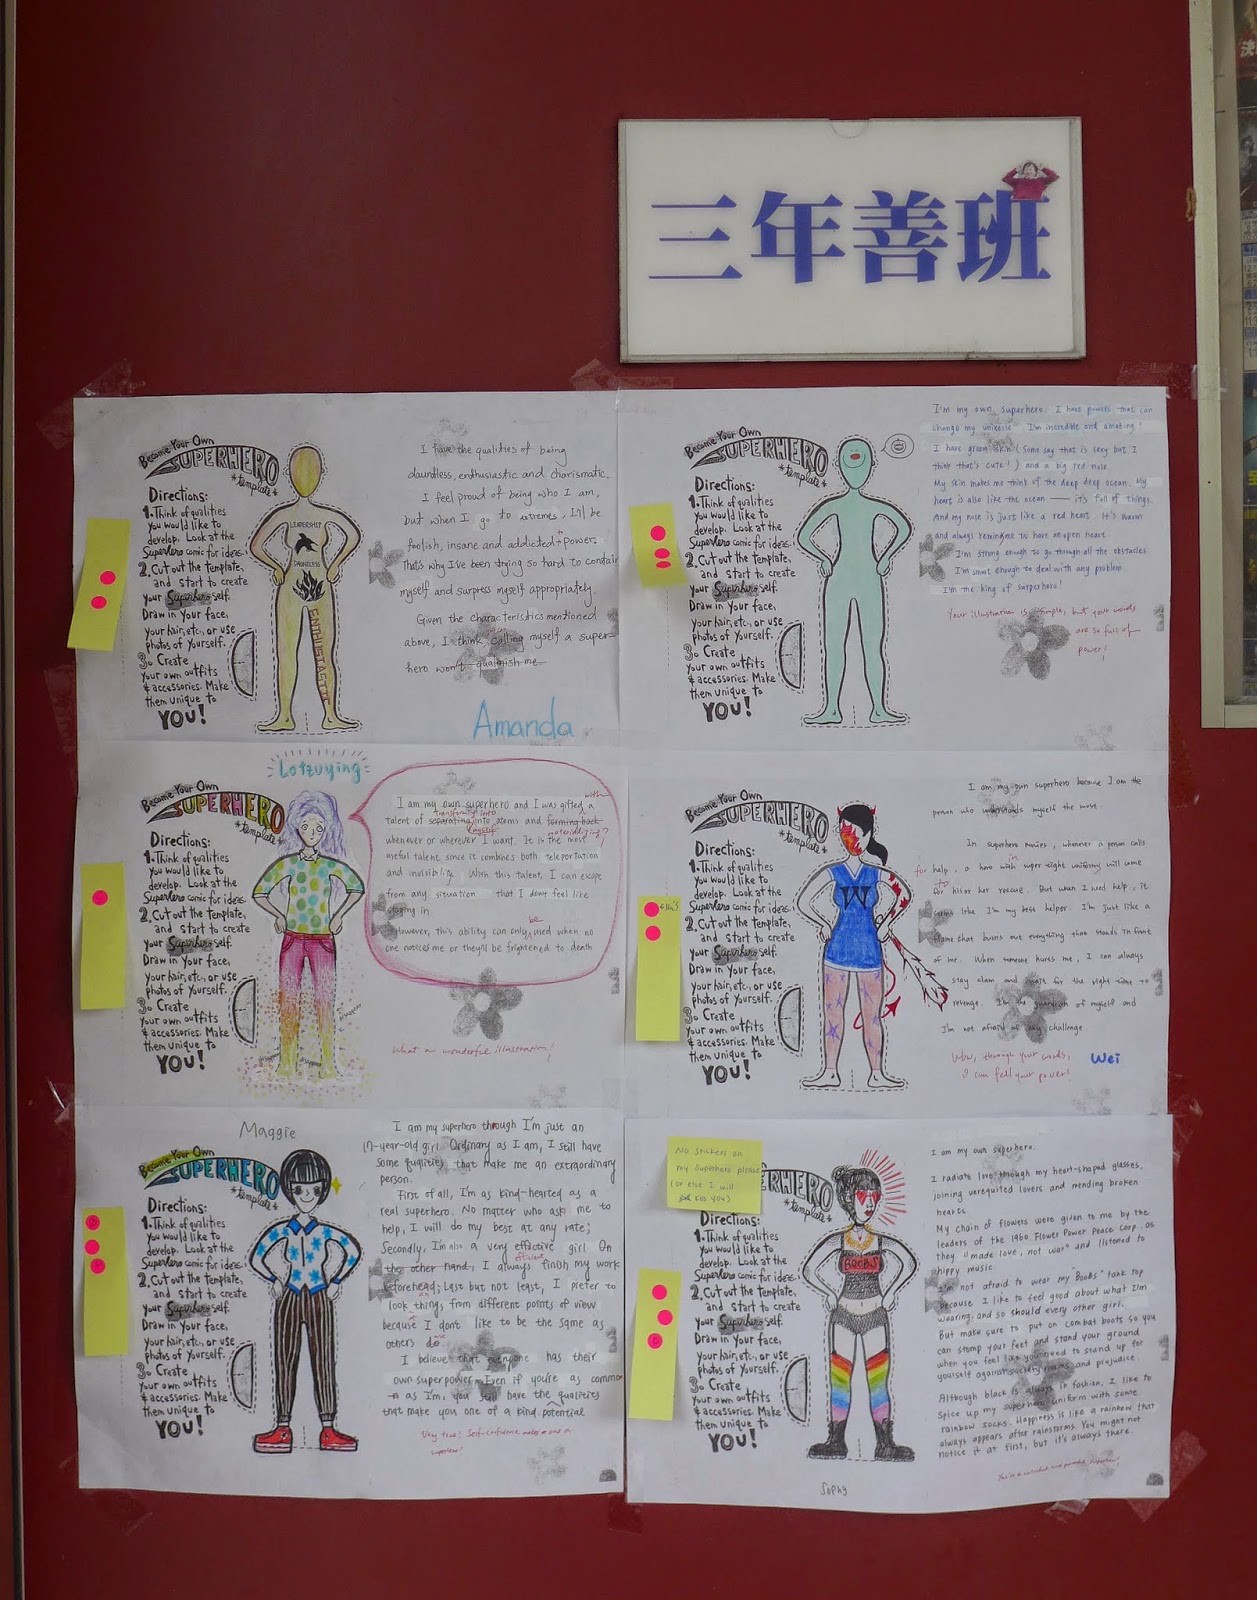 三年善班
Become Your Own
SUPERHERO
*template*
Directions:
1. Think of qualities
you would like to
develop. Look at the
Superhero comic for ideas.
2. Cut out the template,
and start to create
your Superhero self.
Draw in your face,
your hair, etc., or use
photos of yourself.
3. Create
your own outfits
& accessories. Make
them unique to
YOU!
LEADERSHIP
DAUNTLESS
I have the qualities of being
dauntless, enthusiastic and charismatic.
I feel proud of being who I am,
but when I go to extremes, I'll be
foolish, insane and addicted power.
That's why I've been trying so hard to contain
myself and surpress myself appropriately.
Given the characteristics mentioned
above, I think calling myself a super-
hero won't
Amanda
Become Your Own
SUPERHERO
*template*
Directions:
1. Think of qualities
you would like to
develop. Look at the
Superhero comic for ideas.
2. Cut out the template,
and start to create
your Superhero self.
Draw in your face,
your hair, etc., or use
photos of yourself.
3. Create
your own outfits
& accessories. Make
them unique to
YOU!
I'm my own superhero. I have powers that can
change my universe. I'm incredible and amazing!
I have green skin (Some say that is sexy but I
think that's cute!) and a big red nose
My skin makes me think of the deep deep ocean. My
heart is also like the ocean — it's full of things.
And my nose is just like a red heart. It's warm
and always reminds me to have an open heart
I'm strong enough to go through all the obstacles
I'm smart enough to deal with any problem
I'm the king of surperhero!
Your illustration is simple, but your words
are so full of
power!
Lotzuying
Become Your Own
SUPERHERO
*template*
Directions:
1. Think of qualities
you would like to
develop. Look at the
Superhero comic for ideas.
2. Cut out the template,
and start to create
your Superhero self.
Draw in your face,
your hair, etc., or use
photos of yourself.
3. Create
your own outfits
& accessories. Make
them unique to
YOU!
with
I am my own superhero and I was gifted a
talent of separating into atoms and forming back
whenever or wherever I want. It is the most
useful talent since it combines both teleportation
and invisibility. With this talent, I can escape
from any situation that I dont feel like
being in
be
However, this ability can only used when no
one notices me or they'll be frightened to death
What a wonderful illustration!
Become Your Own
SUPERHERO
*template*
Directions:
1. Think of qualities
you would like to
develop. Look at the
Superhero comic for ideas.
2. Cut out the template,
and start to create
your Superhero self.
Draw in your face,
your hair, etc., or use
photos of yourself.
3. Create
your own outfits
& accessories. Make
them unique to
YOU!
W
I am my own superhero because I am the
person who understands myself the most.
In superhero movies, whenever a person calls
for help, a hero with super tight uniform will come
to his or her rescue. But when I need help, it
seems like I'm my best helper. I'm just like a
flame that burns out everything that stands in front
of me. When someone hurts me, I can always
stay calm and wait for the right time to
revenge. I'm the guardian of myself and
I'm not afraid of any challenge
Wow, through your words,
I can feel your power!
Wei
Maggie
Become Your Own
SUPERHERO
*template*
Directions:
1. Think of qualities
you would like to
develop. Look at the
Superhero comic for ideas.
2. Cut out the template,
and start to create
your Superhero self.
Draw in your face,
your hair, etc., or use
photos of yourself.
3. Create
your own outfits
& accessories. Make
them unique to
YOU!
I am my superhero through I'm just an
17-year-old girl. Ordinary as I am, I still have
some qualities that make me an extraordinary
person.
First of all, I'm as kind-hearted as a
real superhero. No matter who ask me to
help, I will do my best at any rate;
Secondly, I'm also a very effective girl. On
efficient
the other hand, I always finish my work
beforehead; Last but not least, I prefer to
look things from different points of view
because I don't like to be the same as
others do.
I believe that everyone has their
own superpower. Even if you're as common
as I'm, you still have the qualities
that make you one of a kind. potential
Very true! Self-confidence makes one a
superhero!
No stickers on
my superhero please
(or else I will
kiss you)
SUPERHERO
*template*
Directions:
1. Think of qualities
you would like to
develop. Look at the
Superhero comic for ideas.
2. Cut out the template,
and start to create
your Superhero self.
Draw in your face,
your hair, etc., or use
photos of yourself.
3. Create
your own outfits
& accessories. Make
them unique to
YOU!
BOOBS
I am my own superhero.
I radiate love through my heart-shaped glasses,
joining unrequited lovers and mending broken
hearts.
My chain of flowers were given to me by the
leaders of the 1960 Flower Power Peace Corp. as
they "made love, not war" and listened to
hippy music
I'm not afraid to wear my "Boobs" tank top
because I like to feel good about what I'm
wearing, and so should every other girl.
But make sure to put on combat boots so you
can stomp your feet and stand your ground
when you feel like you need to stand up for
yourself against society norms and prejudice
Although black is always in fashion, I like to
spice up my superhero uniform with some
rainbow socks. Happiness is like a rainbow that
always appears after rainstorms. You might not
notice it at first, but it's always there.
Sophy